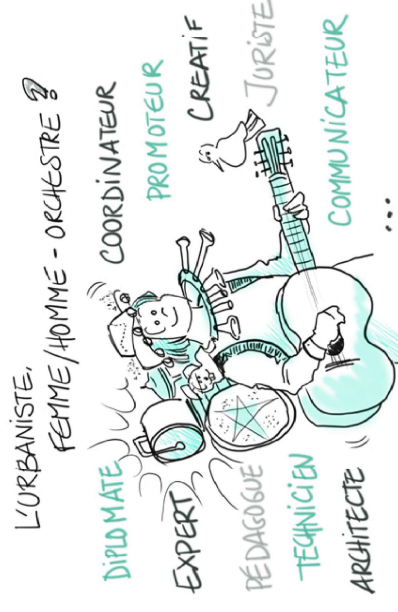 L'URBANISTE,
FEMME/HOMME - ORCHESTRE ?
DIPLOMATE
EXPERT
PÉDAGOGUE
TECHNICIEN
ARCHITECTE
COORDINATEUR
PROMOTEUR
CREATIF
JURISTE
COMMUNICATEUR
...